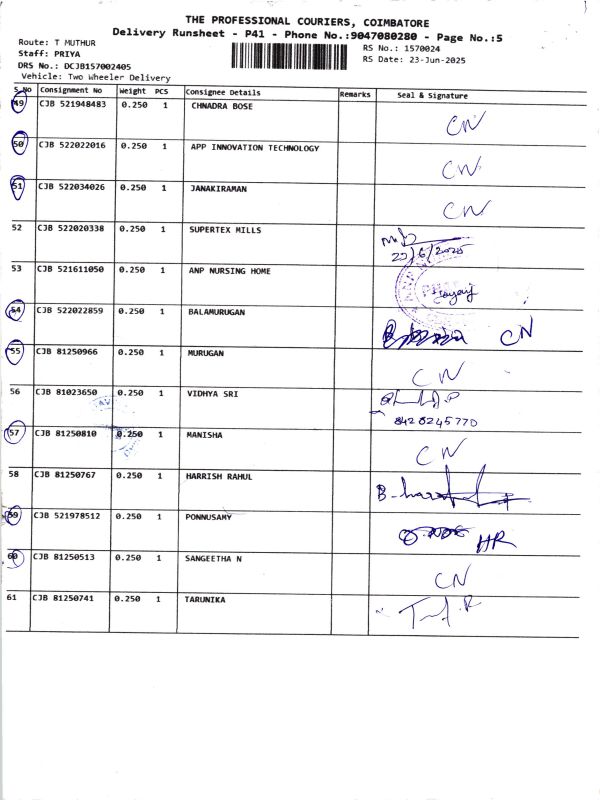 THE PROFESSIONAL COURIERS, COIMBATORE
Delivery Runsheet - P41 - Phone No.:9047080280 - Page No.:5
Route: T MUTHUR
RS No.: 1570024
Staff: PRIYA
RS Date: 23-Jun-2025
DRS No.: DCJB157002405
Vehicle: Two Wheeler Delivery
S No Consignment No Weight PCS Consignee Details Remarks Seal & Signature
49 CJB 521948483 0.250 1 CHNADRA BOSE CN
50 CJB 522022016 0.250 1 APP INNOVATION TECHNOLOGY CN
51 CJB 522034026 0.250 1 JANAKIRAMAN CN
52 CJB 522020338 0.250 1 SUPERTEX MILLS
23/6/2025
53 CJB 521611050 0.250 1 ANP NURSING HOME
54 CJB 522022859 0.250 1 BALAMURUGAN CN
55 CJB 81250966 0.250 1 MURUGAN CN
56 CJB 81023650 0.250 1 VIDHYA SRI
8428245770
57 CJB 81250810 0.250 1 MANISHA CN
58 CJB 81250767 0.250 1 HARRISH RAHUL
59 CJB 521978512 0.250 1 PONNUSAMY HR
60 CJB 81250513 0.250 1 SANGEETHA N CN
61 CJB 81250741 0.250 1 TARUNIKA